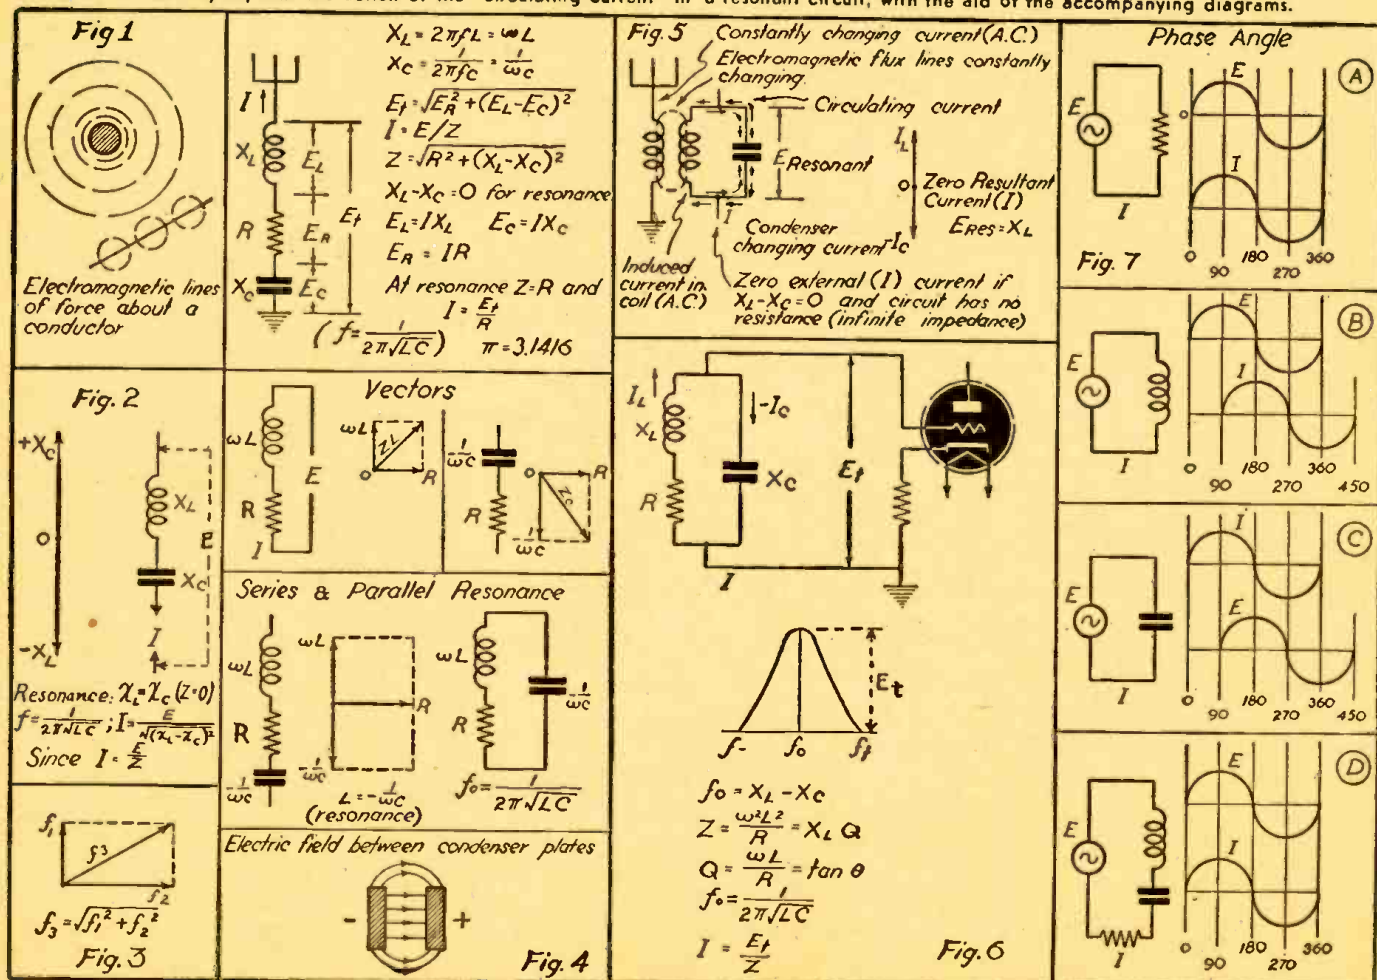 "circulating current" in a resonant circuit, with the aid of the accompanying diagrams.
Fig 1
Electromagnetic lines
of force about a
conductor
I
X_L
R
X_C
E_L
E_R
E_C
E_t
X_L = 2πfL = ωL
X_C = 1/2πfC = 1/ωC
E_t = √E_R² + (E_L-E_C)²
I = E/Z
Z = √R² + (X_L-X_C)²
X_L-X_C = O for resonance
E_L = IX_L E_C = IX_C
E_R = IR
At resonance Z=R and
I = E_t/R
(f = 1/2π√LC)
π = 3.1416
Fig. 2
+X_C
O
-X_L
X_L
X_C
E
I
Resonance: X_L = X_C (Z=0)
f = 1/2π√LC ; I = E/√(X_L-X_C)²
Since I = E/Z
f₁
f3
f2
f₃ = √f₁² + f₂²
Fig. 3
Vectors
ωL
R
I
E
ωL
Z_L
O
R
1/ωC
R
O
R
Z_C
-1/ωC
Series & Parallel Resonance
ωL
R
-1/ωC
ωL
R
-1/ωC
L = -1/ωC
(resonance)
ωL
R
1/ωC
f₀ = 1/2π√LC
Electric field between condenser plates
-
+
Fig. 4
Fig. 5
Constantly changing current (A.C.)
Electromagnetic flux lines constantly
changing.
Circulating current
E Resonant
I
I_L
O
Zero Resultant
Current (I)
E Res = X_L
-I_C
Condenser
changing current
Induced
current in
coil (A.C.)
Zero external (I) current if
X_L-X_C = O and circuit has no
resistance (infinite impedance)
I_L
X_L
R
-I_C
X_C
E_t
I
E_t
f-
fo
f_t
fo = X_L - X_C
Z = ω²L²/R = X_L Q
Q = ωL/R = tan θ
fo = 1/2π√LC
I = E_t/Z
Fig. 6
Phase Angle
A
E
I
O
E
I
0
90
180
270
360
Fig. 7
B
E
I
E
I
0
90
180
270
360
450
C
E
I
I
E
0
90
180
270
360
450
D
E
I
E
I
0
90
180
270
360